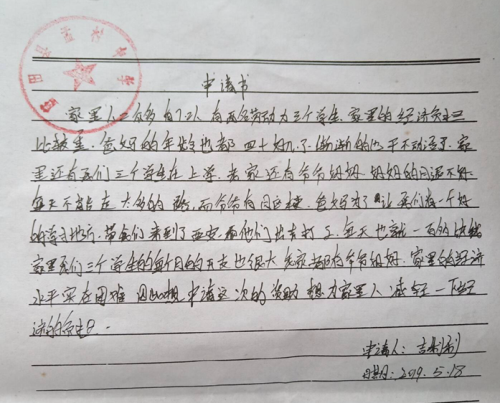 申请书
家里人口多有7口人 有两名劳动力 三个学生 家里的经济负担
比较重 爸妈的年龄也都四十好几了 渐渐的也干不动活了 家
里还有我们三个学生在上学 老家还有爷爷奶奶 奶奶的 不好
每天不能走太多的路 而爷爷有 爸妈为了让我们有一个好
的学习地所 带我们来到了西安 而他们出去打工 每天也就一百的块钱
家里我们三个学生的每个月的开支也很大 老家都有爷爷奶奶 家里的经济
水平实在困难 因此想申请这次的资助 想为家里人减轻一下经
济的负担
申请人:
日期:2019.5.18